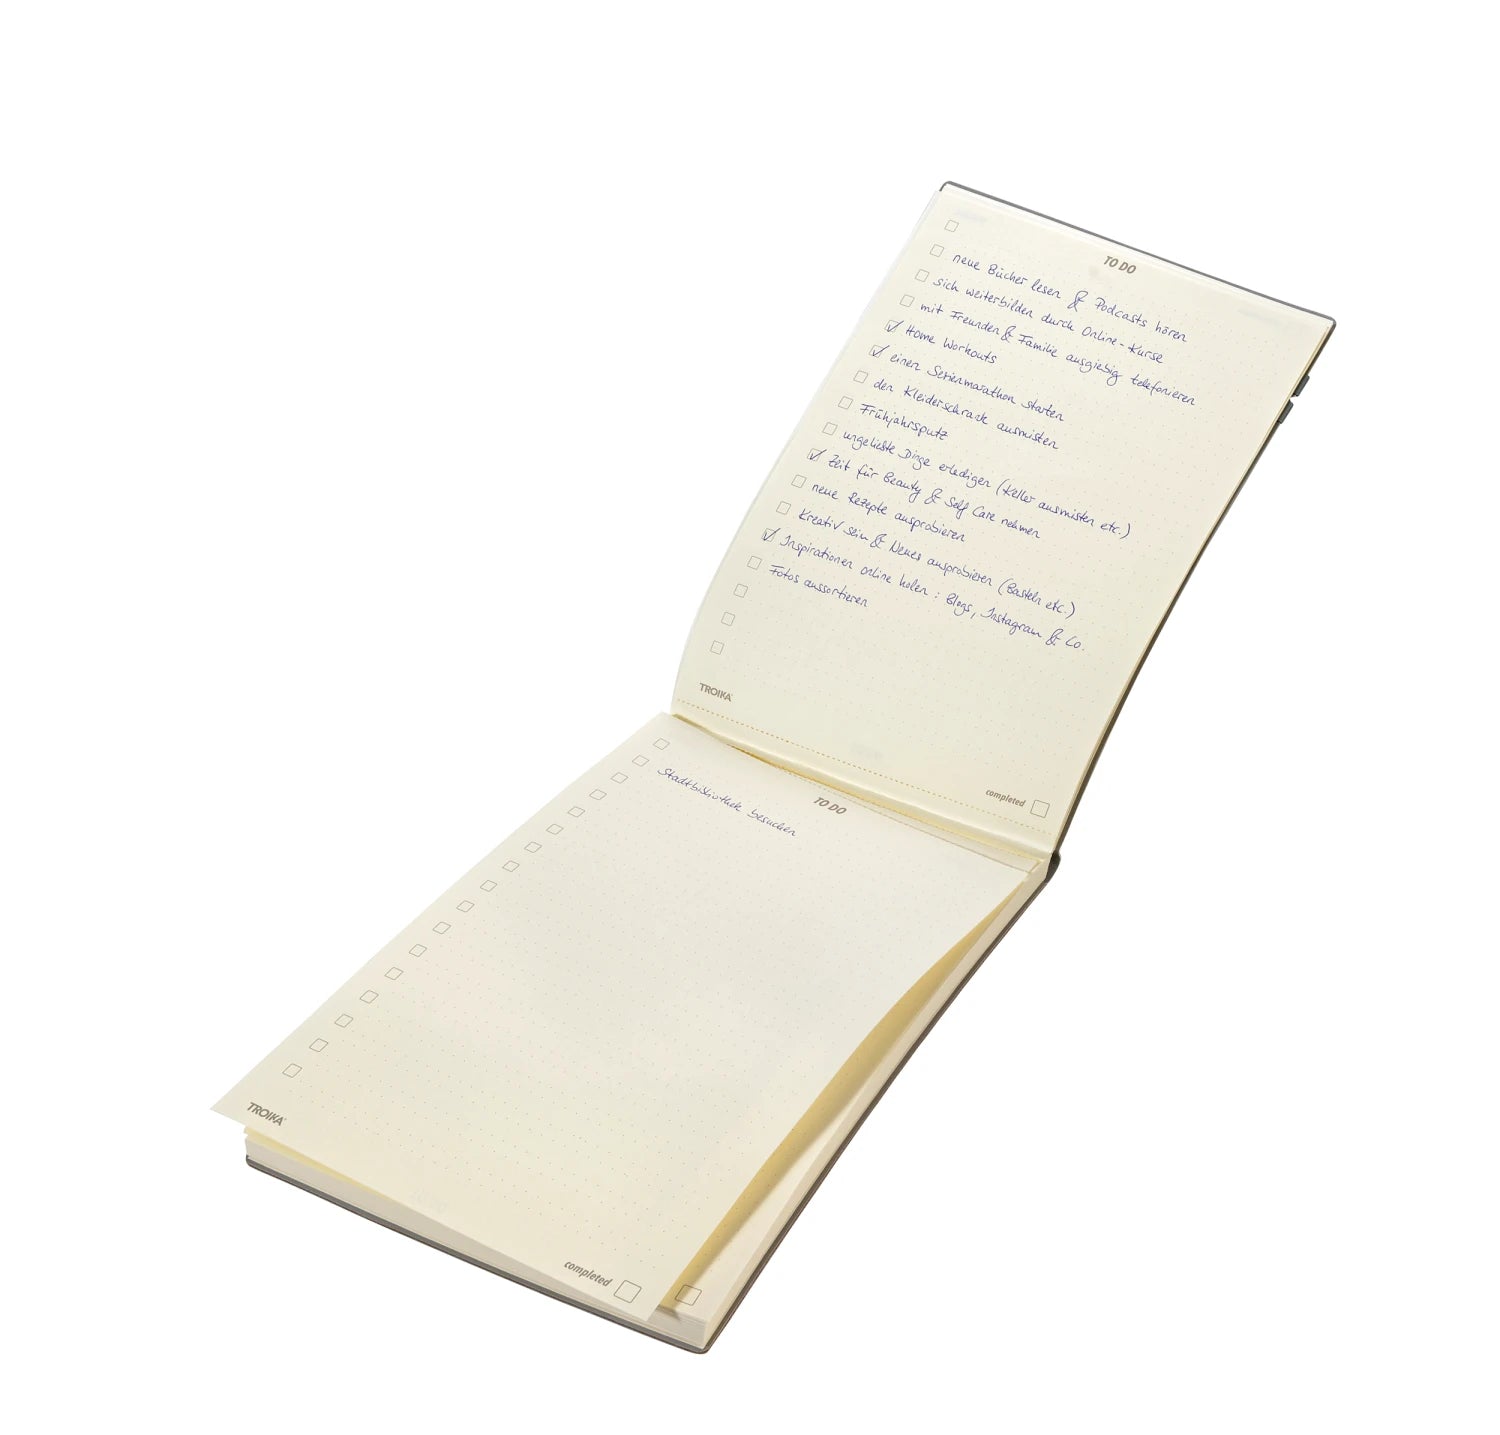 TO DO
neue Bücher lesen & Podcasts hören
sich weiterbilden durch Online-Kurse
mit Freunden & Familie ausgiebig telefonieren
Home Workouts
einen Serienmarathon starten
den Kleiderschrank ausmisten
Frühjahrsputz
ungeliebte Dinge erledigen (Keller ausmisten etc.)
Zeit für Beauty & Self Care nehmen
neue Rezepte ausprobieren
Kreativ sein & Neues ausprobieren (Basteln etc.)
Inspirationen online holen: Blogs, Instagram & Co.
Fotos aussortieren
TROIKA
completed
TO DO
Stadtbibliothek besuchen
TROIKA
completed